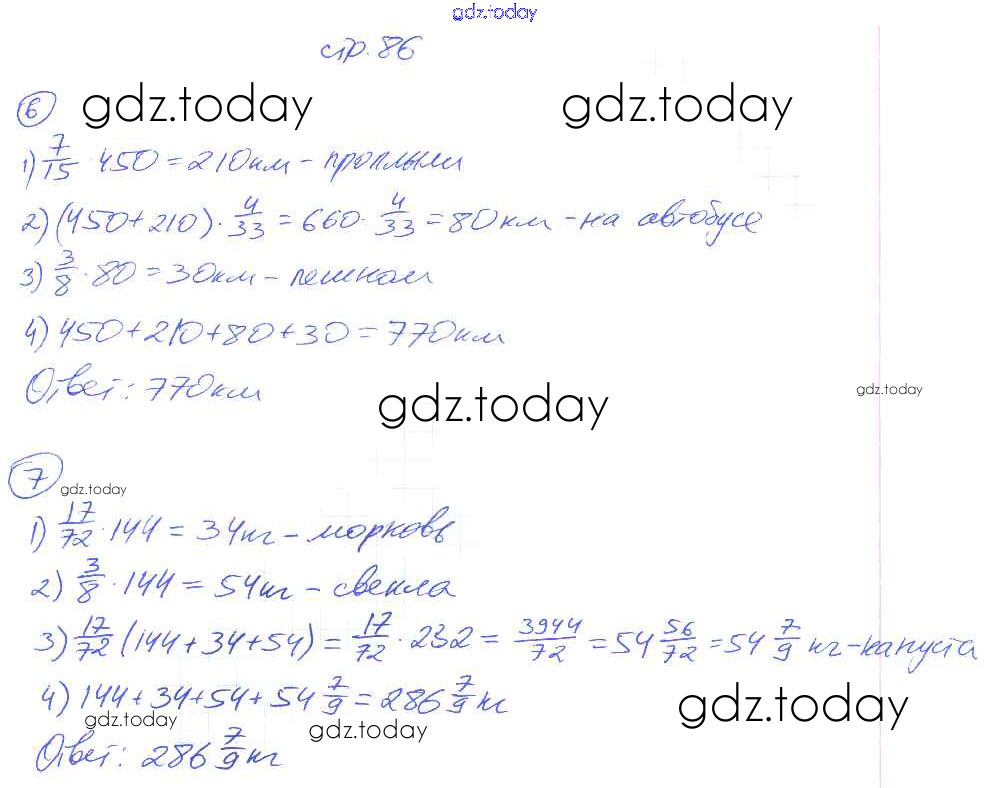 gdz.today
стр. 86
6 gdz.today gdz.today
1) 7/15 · 450 = 210 км – проплыли
2) (450 + 210) · 4/33 = 660 · 4/33 = 80 км – на автобусе
3) 3/8 · 80 = 30 км – пешком
4) 450 + 210 + 80 + 30 = 770 км
Ответ: 770 км
gdz.today gdz.today
7 gdz.today
1) 17/72 · 144 = 34 кг – морковь
2) 3/8 · 144 = 54 кг – свекла
3) 17/72 (144 + 34 + 54) = 17/72 · 232 = 3944/72 = 54 56/72 = 54 7/9 кг – капуста
4) 144 + 34 + 54 + 54 7/9 = 286 7/9 кг
gdz.today gdz.today gdz.today
Ответ: 286 7/9 кг